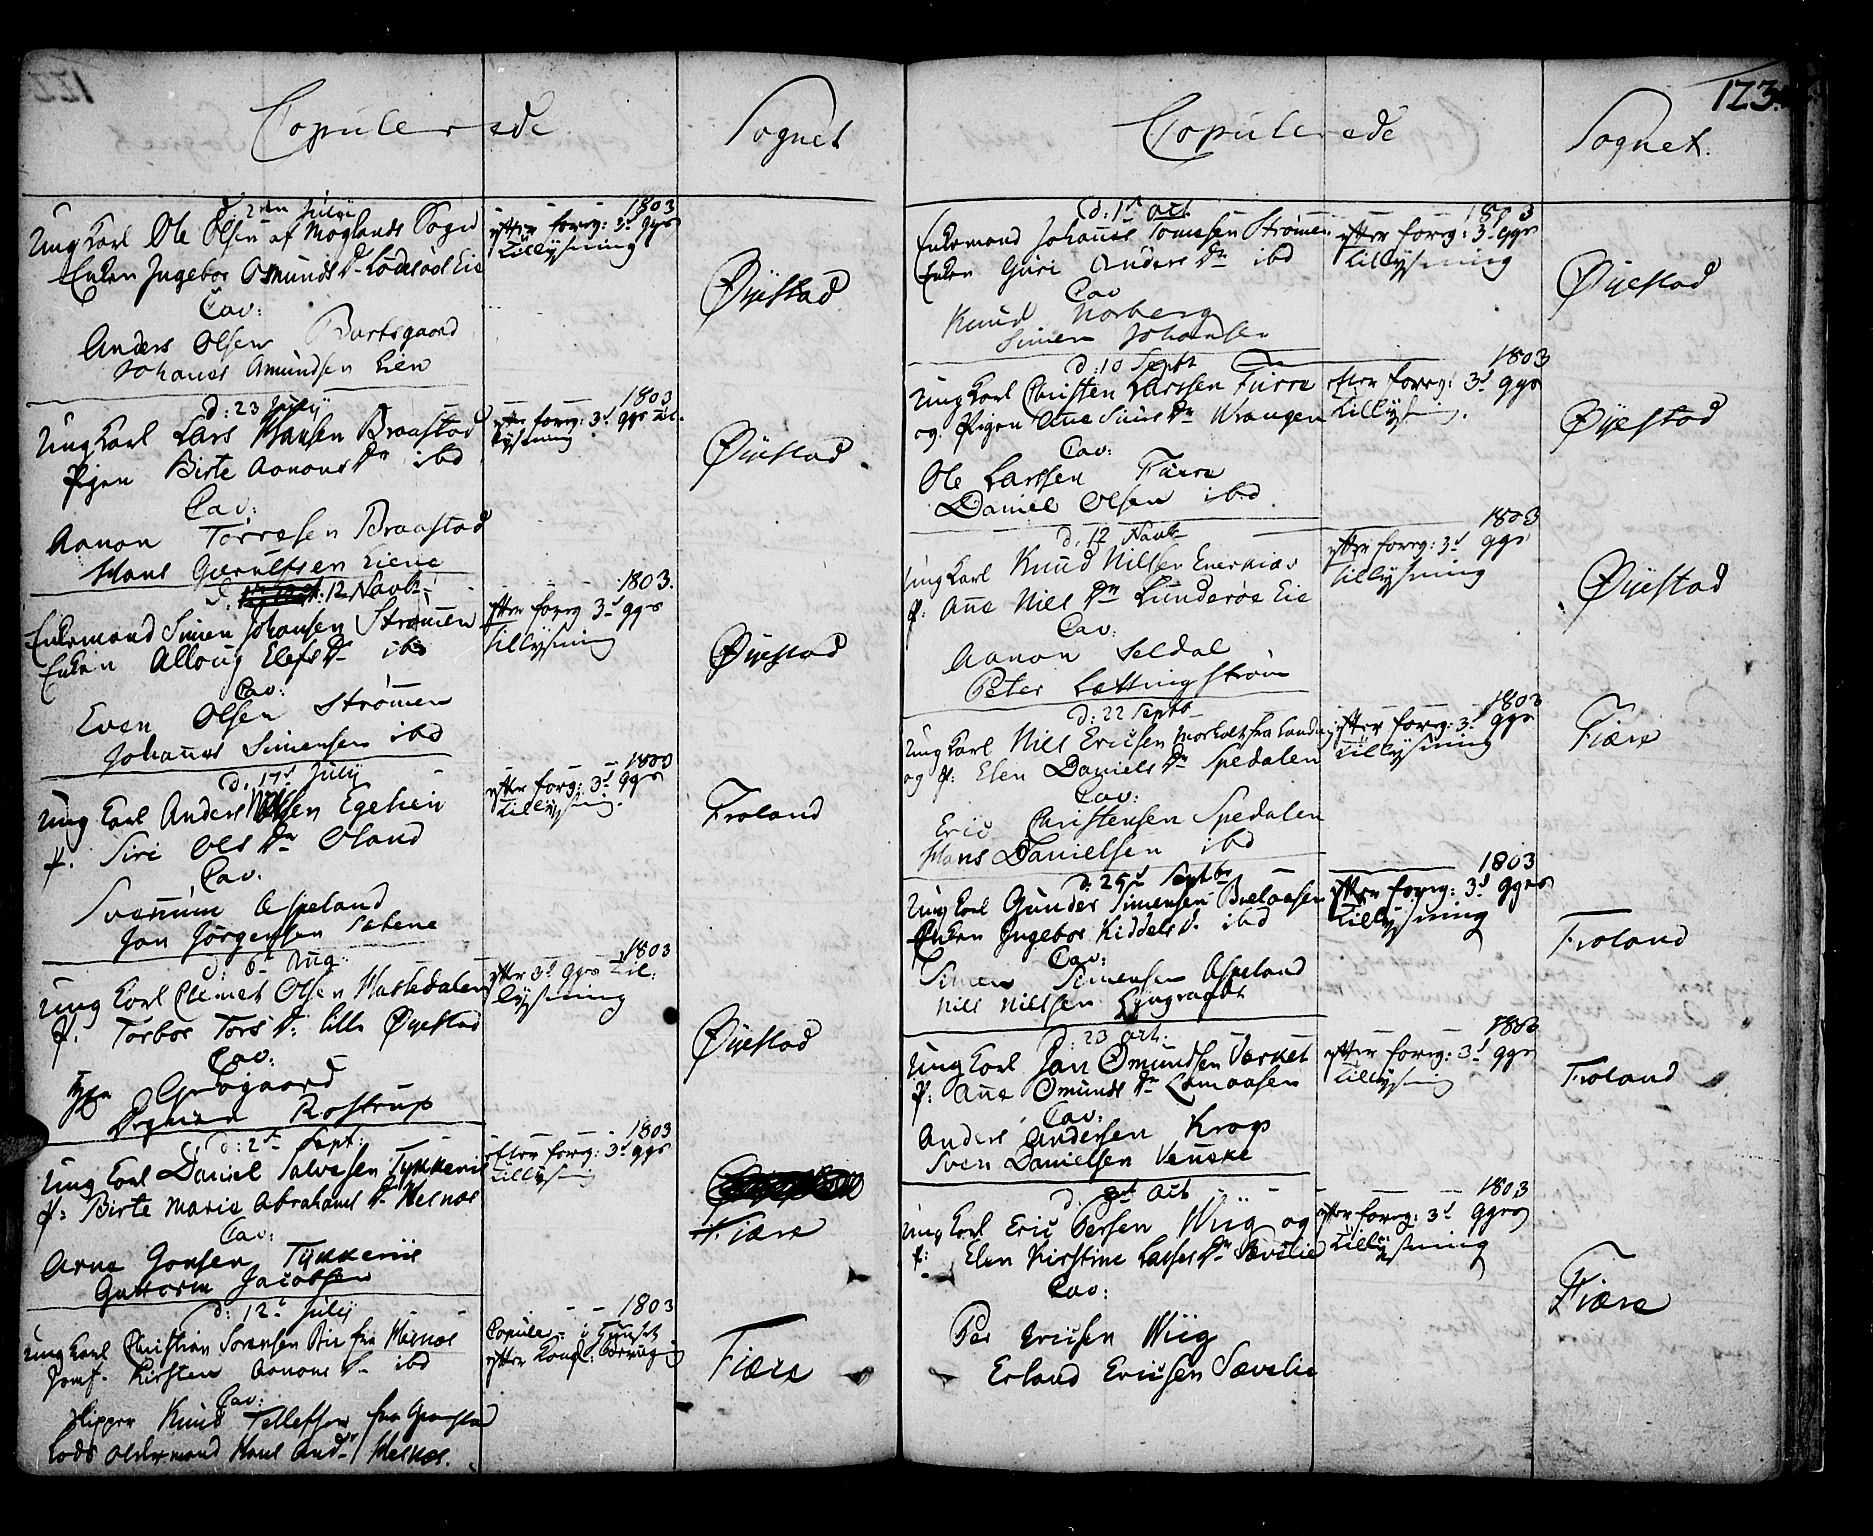 Copulerede
Sognet
d. 2den July
Ung Karl Ole Olsen af Moglands Sogn
Enken Ingebor Osmunds Dr Lødesøls Eie
Cav:
Anders Olsen Bortsgaard
Johanes Amundsen Eien
1803
efter forrg: 3de ggrs
Tillysning
Øyestad
d: 23 July
Ung Karl Lars Hansen Braastad
Pigen Birte Aanons Dr ibd
Cav:
Aanon Torresen Braastad
Hans Gierulfsen Eiene
1803
efter forrg: 3de ggrs Til-
lysning
Øyestad
d. 12 Novb:
Enkemand Simen Johansen Strømen
Enken Alloug Elefs Dr ibd
Cav:
Even Olsen Strømen
Johanes Simensen ibd
1803.
efter forrg 3de ggrs
Tillysning
Øyestad
d. 17de July
Ung Karl Anders Nilsen Egehei
P. Siri Ols Dr Oland
Cav.
Svennum Aspeland
Jon Jørgensen Sætene
1803
efter forrg: 3de ggrs
Tillysning.
Froland
d: 6te Aug:
Ung Karl Clemet Olsen Maskedalen
P. Torbor Tors D: lille Øyestad
Cav:
Bøgaard
Rostrup
1803
efter 3de ggrs Til:
lysning
Øyestad
d: 2de Sept:
Ung Karl Daniel Salvesen Tykkeniis
P: Birte Marie Abrahams Dr Hesnæs
Cav:
Arne Gonsen Tykkeniis
Guttorm Jacobsen
1803
efter forrg: 3de ggrs
Tillysning
Fiære
d: 12te July
Ung Karl Christian Sørensen Bie fra Hesnæs
Jomf. Kirsten Aanons Dr ibd
Cav:
Skipper Knud Tellefsen fra Grimstad
Lods Oldermand Hans And: Hesnæs.
1803
Copule- i Huuset
efter Kongl: Bevilgning
Fiære
123.
Copulerede
Sognet.
d: 1te Oct
Enkemand Johanes Tomesen Strømen
Enken Guri Anders Dr ibd
Cav
Knud Norberg
Simen Johansen
1803
efter forrg: 3de ggrs
Tillysning
Øyestad
d: 10 Sept
Ung Karl Christen Larssen Furre
og Pigen Ane Siuls Dr Wrangen
Cav:
Ole Larssen Furre
Daniel Olsen ibd
1803
efter forrg: 3de ggrs
Tillysning.
Øyestad
d: 12 Novb
Ung Karl Knud Nilsen Enerkiær
P: Ane Niels Dr Lunderøe Eie
Cav:
Aanon Seldal
Peter Lættingstrøm
1803
efter forrg: 3de ggrs
Tillysning
Øyestad
d: 22 Septb
Ung Karl Niels Ericsen Morholt fra Landvig
og P: Elen Daniels Dr Spedalen
Cav:
Eric Christensen Spedalen
Hans Danielsen ibd
1803
efter forrg: 3de ggrs
Tillysning
Fiære
d: 25de Septbr
Ung Karl Gunder Simensen Bselaasen
Enken Ingebor Kiddels D. ibd
Cav:
Simen Simensen Aspeland
Niels Nilssen Lyngraadt
1803
efter forrg: 3de ggrs
Tillysning
Froland
d: 23 Oct:
Ung Karl Jan Omundsen Værket
P: Ane Omunds Dr Lomaasen
Cav:
Anders Andersen Krog
Sven Danielsen Venske
1803
efter forrg: 3de ggrs
Tillysning
Froland
d. 8de Octb
Ung Karl Eric Persen Wiig og
P: Elen Kirstine Lasses Dr Sævelie
Cav:
Per Ericsen Wiig
Erland Ericsen Sævelie
1803
efter forrg: 3de ggrs
Tillysning
Fiære